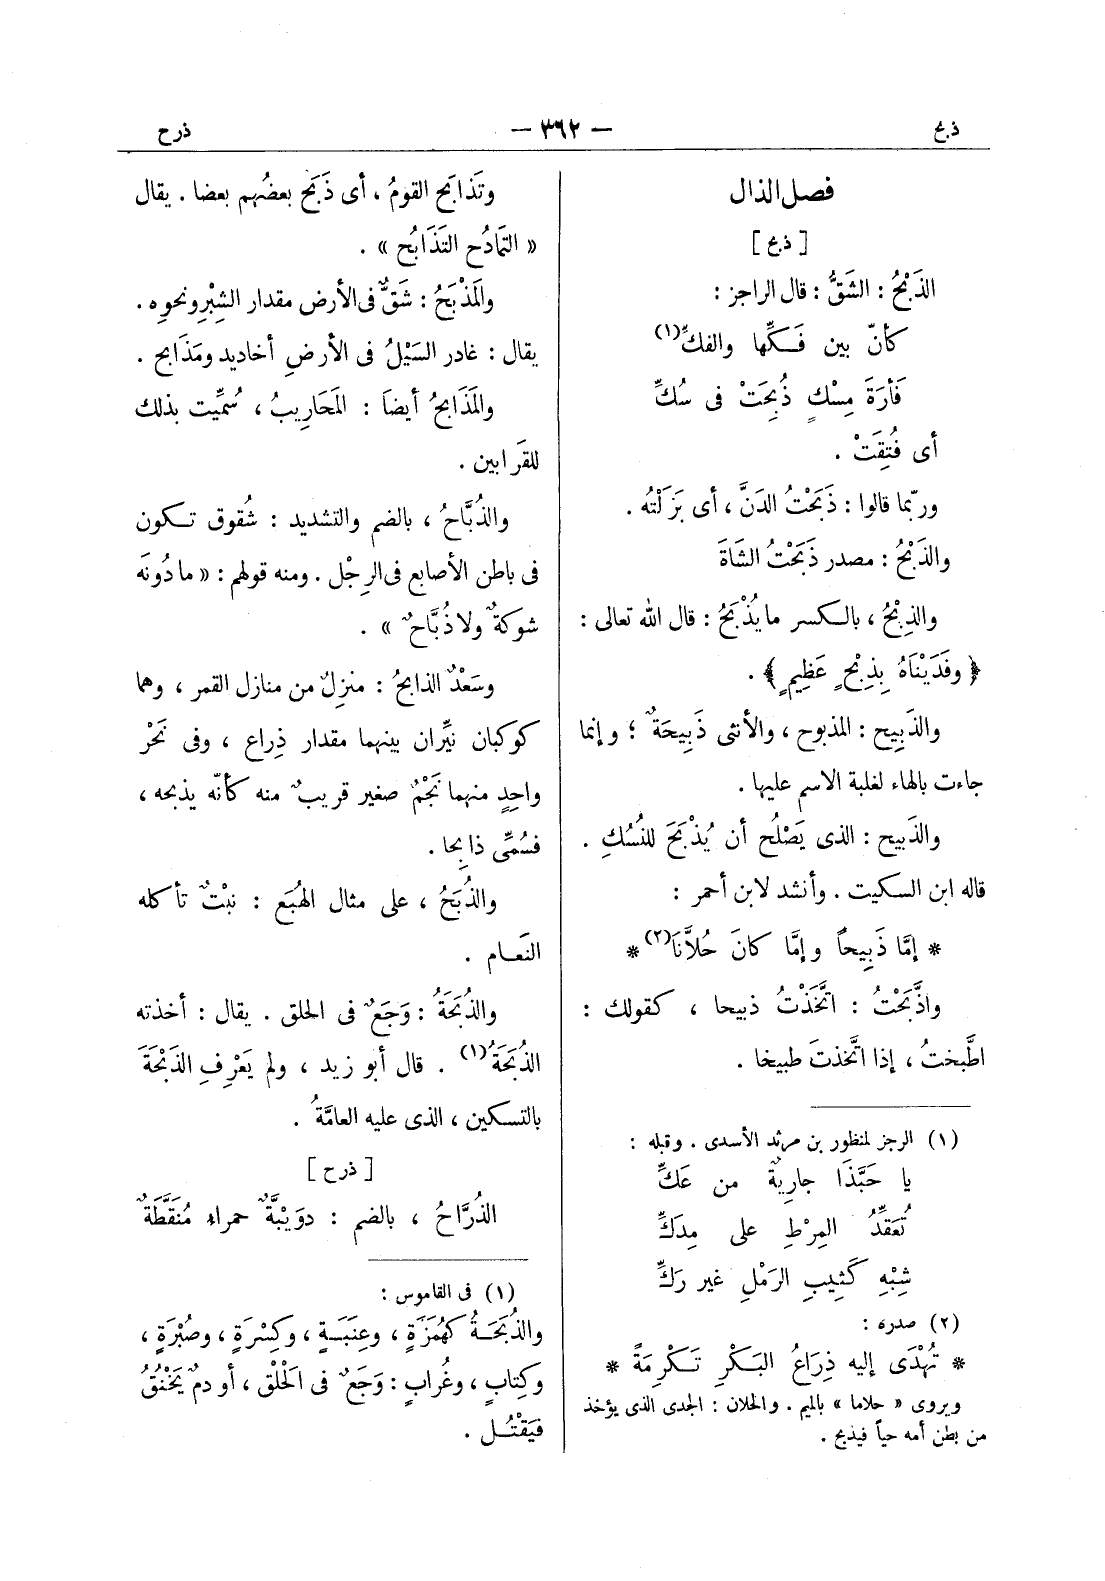 ذبح
— ٣٦٢ —
ذرح
فصل الذال
[ ذبح ]
الذَبْحُ : الشَقُّ : قال الراجز :
كأنّ بين فَكِّها والفكِّ(١)
فَأرَةَ مِسْكٍ ذُبِحَتْ فى سُكِّ
أى فُتِقَتْ .
وربّما قالوا : ذَبَحْتُ الدَنَّ ، أى بَزَلْتُه .
والذَبْحُ : مصدر ذَبَحْتُ الشَاةَ
والذِبْحُ ، بالكسر ما يُذْبَحُ : قال الله تعالى :
﴿ وفَدَيْنَاهُ بِذِبْحٍ عَظِيمٍ ﴾ .
والذَبِيح : المذبوح ، والأنثى ذَبِيحَةٌ ؛ وإنما
جاءت بالهاء لغلبة الاسم عليها .
والذَبيح : الذى يَصْلُح أن يُذْبَحَ للنُسُكِ .
قاله ابن السكيت . وأنشد لابن أحمر :
* إمَّا ذَبِيحاً وإمَّا كانَ حُلاَّنَا(٢) *
واذَّبَحْتُ : اتَّخَذْتُ ذبيحا ، كقولك :
اطَّبختُ ، إذا اتَّخذتَ طبيخا .
(١) الرجز لمنظور بن مرثد الأسدى . وقبله :
يا حَبَّذَا جاريةٌ من عَكِّ
تُعَقِّدُ المِرْطِ على مِدَكِّ
شِبْهِ كَثِيبِ الرَمْلِ غير رَكِّ
(٢) صدره :
* تُهْدَى إليه ذِرَاعُ البَكْرِ تَكْرِمَةً *
ويروى « حلاما » بالميم . والحلان : الجدى الذى يؤخذ
من بطن أمه حياً فيذبح .
وتَذابَح القومُ ، أى ذَبَح بعضُهم بعضا . يقال
« التمادُح التَذَابُح » .
والمَذْبَحُ : شَقٌّ فى الأرض مقدار الشِبْرِ ونحوه .
يقال : غادر السَيْلُ فى الأرضِ أخاديد ومَذَابح .
والمَذَابحُ أيضاً : المَحَاريبُ ، سُمِّيت بذلك
للقَرابين .
والذُبَّاحُ ، بالضم والتشديد : شُقوق تكون
فى باطن الأصابع فى الرِجْل . ومنه قولهم : « ما دُونَه
شوكةٌ ولا ذُبَّاحٌ » .
وسَعْدٌ الذابحُ : منزِلٌ من منازل القمر ، وهما
كوكبان نَيِّران بينهما مقدار ذِراع ، وفى نَحْر
واحِدٍ منهما نَجْمٌ صغير قريبٌ منه كأنّه يذبحه ،
فسُمِّى ذابِحا .
والذُبَحُ ، على مثال الهُبَع : نبْتٌ تأكله
النَعام .
والذُبَحَةُ : وَجَعٌ فى الحلق . يقال : أخذته
الذُبَحَةُ(١) . قال أبو زيد ، ولم يَعْرِفِ الذَبْحَةَ
بالتسكين ، الذى عليه العامَّةُ .
[ ذرح ]
الذُرَّاحُ ، بالضم : دوَيْبَّةٌ حمراء مُنَقَّطَةٌ
(١) فى القاموس :
والذُبَحَةُ كهُمَزَةٍ ، وعِنَبَةٍ ، وكِسْرَةٍ ، وصُبْرَةٍ ،
وكِتابٍ ، وغُرابٍ : وَجَعٌ فى الْحَلْق ، أو دمٌ يَخْنُقُ
فيَقْتُل .